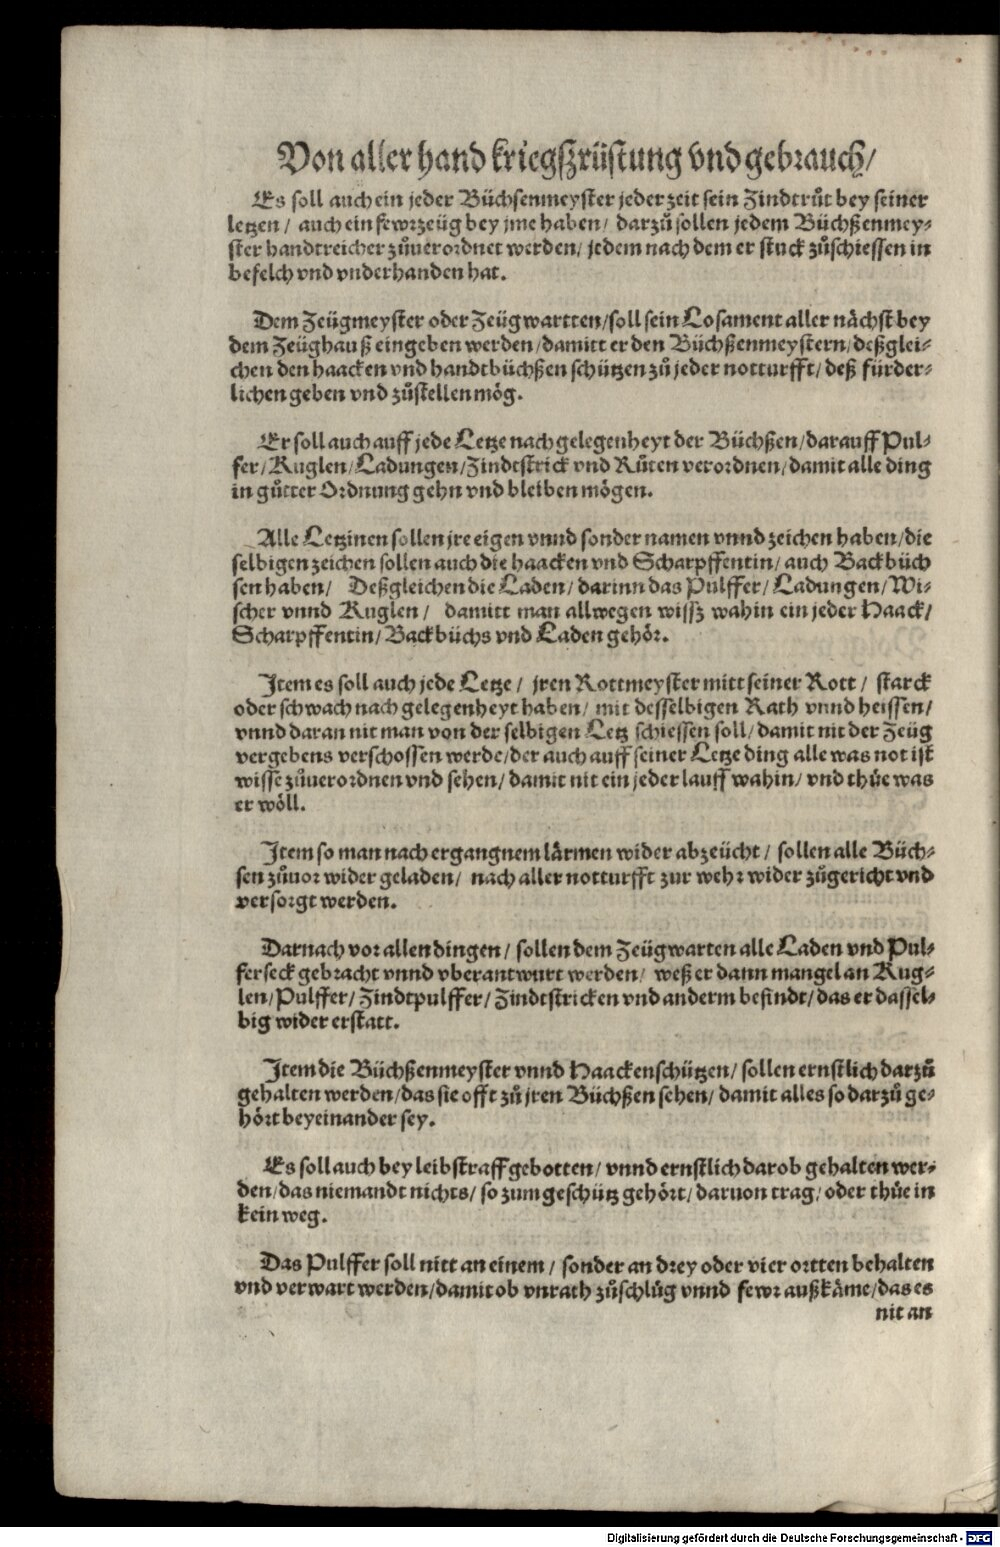 Von aller hand kriegszrüstung vnd gebrauch/
Es soll auch ein jeder Büchsenmeyster jeder zeit sein Zindtrůt bey seiner
letzen / auch ein fewrzeüg bey jme haben / darzů sollen jedem Büchßenmey⸗
ster handtreicher zůuerordnet werden / jedem nach dem er stuck zůschiessen in
befelch vnd vnderhanden hat.
Dem Zeügmeyster oder Zeügwartten / soll sein Losament aller nächst bey
dem Zeüghauß eingeben werden / damitt er den Büchßenmeystern / deßglei⸗
chen den haacken vnd handtbüchßen schützen zů jeder notturfft / deß fürder⸗
lichen geben vnd zůstellen mög.
Er soll auch auff jede Letze nach gelegenheyt der Büchßen / darauff Pul⸗
fer / Kuglen / Ladungen / Zindtstrick vnd Růten verordnen / damit alle ding
in gůtter Ordnung gehn vnd bleiben mögen.
Alle Letzinen sollen jre eigen vnnd sonder namen vnnd zeichen haben / die
selbigen zeichen sollen auch die haacken vnd Scharpffentin / auch Backbüch
sen haben / Deßgleichen die Laden / darinn das Pulffer / Ladungen / Wi⸗
scher vnnd Kuglen / damitt man allwegen wissz wahin ein jeder Haack /
Scharpffentin / Backbüchs vnd Laden gehör.
Item es soll auch jede Letze / jren Rottmeyster mitt seiner Rott / starck
oder schwach nach gelegenheyt haben / mit desselbigen Rath vnnd heissen /
vnnd daran nit man von der selbigen Letz schiessen soll / damit nit der Zeüg
vergebens verschossen werde / der auch auff seiner Letze ding alle was not ist
wisse zůuerordnen vnd sehen / damit nit ein jeder lauff wahin / vnd thůe was
er wöll.
Item so man nach ergangnem lärmen wider abzeücht / sollen alle Büch⸗
sen zůuor wider geladen / nach aller notturfft zur wehr wider zůgericht vnd
versorgt werden.
Darnach vor allen dingen / sollen dem Zeügwarten alle Laden vnd Pul⸗
ferseck gebracht vnnd vberantwurt werden / weß er dann mangel an Kug⸗
len / Pulffer / Zindtpulffer / Zindtstricken vnd anderm befindt / das er dassel⸗
big wider erstatt.
Item die Büchßenmeyster vnnd Haackenschützen / sollen ernstlich darzů
gehalten werden / das sie offt zů jren Büchßen sehen / damit alles so darzů ge⸗
hört beyeinander sey.
Es soll auch bey leibstraff gebotten / vnnd ernstlich darob gehalten wer⸗
den / das niemandt nichts / so zum geschütz gehört / daruon trag / oder thůe in
kein weg.
Das Pulffer soll nitt an einem / sonder an drey oder vier ortten behalten
vnd verwart werden / damit ob vnrath zůschlůg vnnd fewr außkäme / das es
nit an
Digitalisierung gefördert durch die Deutsche Forschungsgemeinschaft - DFG